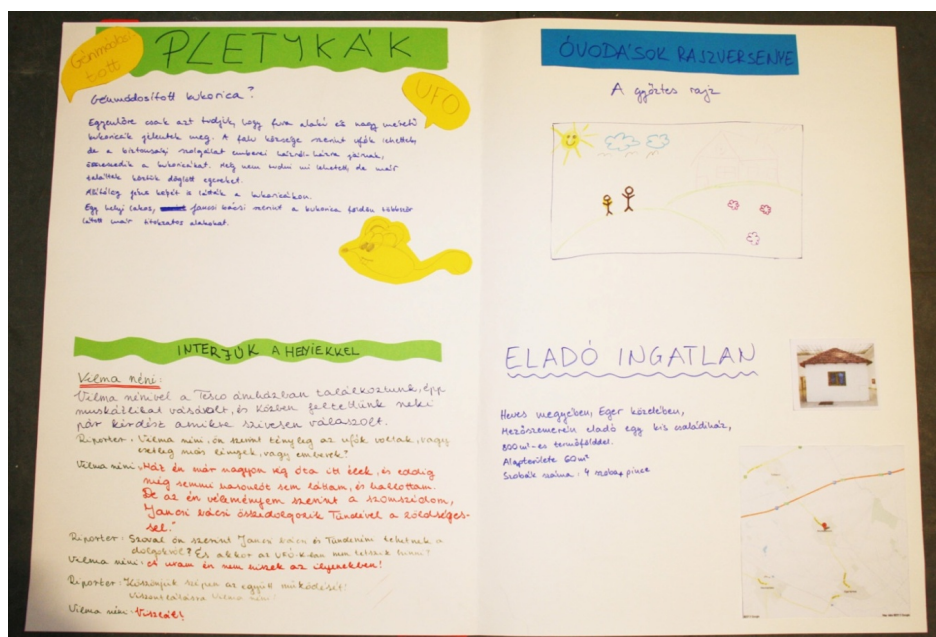 Génmódosí-
tott
PLETYKÁK
UFO
Génmódosított kukorica?
Egyenlőre csak azt tudjuk, hogy fura alakú és nagy méretű
kukoricák jelentek meg. A falu községe szerint ufók lehettek,
de a biztonsági szolgálat emberei házról-házra járnak,
a kukoricákat. Még nem tudni mi lehetett, de már
találtak köztük döglött egereket.
Állítólag képét is látták a kukoricákon.
Egy helyi lakos, Jancsi bácsi szerint a kukorica földön többször
látott már titokzatos alakokat.
INTERJÚK A HELYIEKKEL
Vilma néni:
Vilma nénivel a Tesco áruházban találkoztunk, épp
muskátlikat vásárolt, és közben feltettünk neki
pár kérdést amikre szívesen válaszolt.
Riporter: Vilma néni, ön szerint tényleg az ufók voltak, vagy
esetleg más lények, vagy emberek?
Vilma néni: „Hát én már nagyon rég óta itt élek, és eddig
még semmi hasonlót sem láttam, és hallottam.
De az én véleményem szerint a szomszédom,
Jancsi bácsi összedolgozik Tündével a zöldséges-
sel."
Riporter: Szóval ön szerint Jancsi bácsi és Tündenéni tehetnek a
dolgokról? És akkor az UFÓ-k-ban nem tetszik hinni?
Vilma néni: Á uram én nem hiszek az ilyenekben!
Riporter: Köszönjük szépen az együtt működését!
Viszontlátásra Vilma néni!
Vilma néni: Viszlát!
ÓVODÁSOK RAJZVERSENYE
A győztes rajz
ELADÓ INGATLAN
Heves megyében, Eger közelében,
Mezőszemerén eladó egy kis családiház,
800m²-es termőfölddel.
Alapterülete 60m²
Szobák száma: 4 szoba, pince